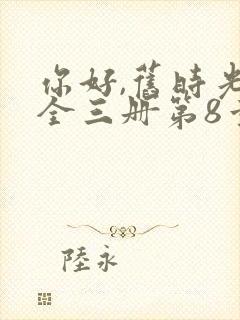 你好,舊時光
全三册第8
陸永